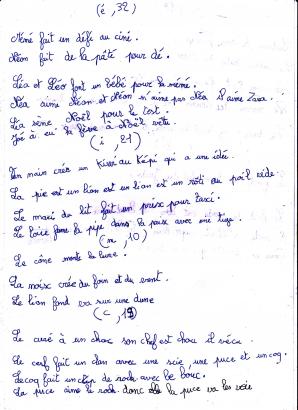 (é, 32)
Néné fait un défi au ciné.
Néon fait de la pâté pour dé.
Léa et Léo font un bébé pour la mémé.
Néa aime Néon et Néon n'aime pas Néa
Léa sème Noël pour le test.
à eu la fève à Noël
(i, 21)
Un main crée un Kiwi au Képi qui a une idée.
La pie est un lion est un lion est un rôti au poil vide.
Le mari du lit fait un prix pour taxi.
Le loice fume la pipe dans la paix avec une tige.
(n, 10)
Le cône monte la lune.
La noix crée du foin et du vent.
Le lion fond va sur une dune
(c, 19)
Le curé à un choc son chef est chou il vécu.
Le cerf fait un clan avec une scie, une puce et un coq.
Le coq fait un clip de rock avec le bouc.
La puce aime le rock donc elle la puce va les voir